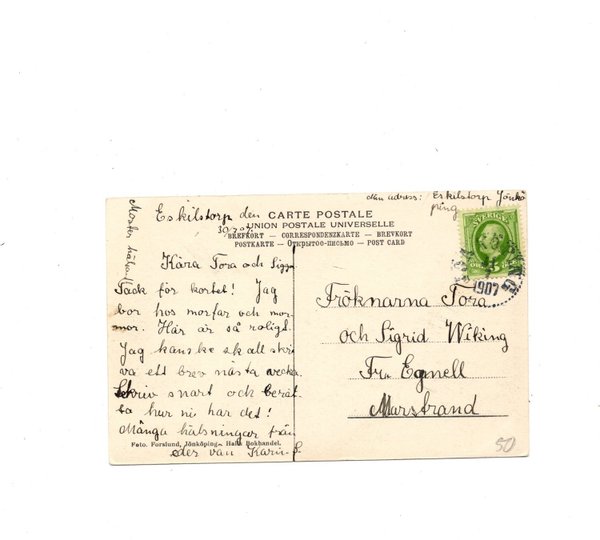 min adress: Eskilstorp Jönkö
ping
Eskilstorp den
30/7 07
CARTE POSTALE
UNION POSTALE UNIVERSELLE
BREFKORT — CORRESPONDENZKARTE — BREVKORT
POSTKARTE — Открытое-письмо — POST CARD
Moster hälsar!
SVERIGE
1907
Kära Tora och Sigge
Tack för kortet! Jag
bor hos morfar och mor-
mor. Här är så roligt.
Jag kanske skall skri
va ett brev nästa vecka.
Skriv snart och berät-
ta hur ni har det!
Många hälsningar från
eder vän Karin S.
Foto. Forslund, Jönköping— Halls Bokhandel.
Fröknarna Tora
och Sigrid Wiking
Fru Egnell
Marstrand
50